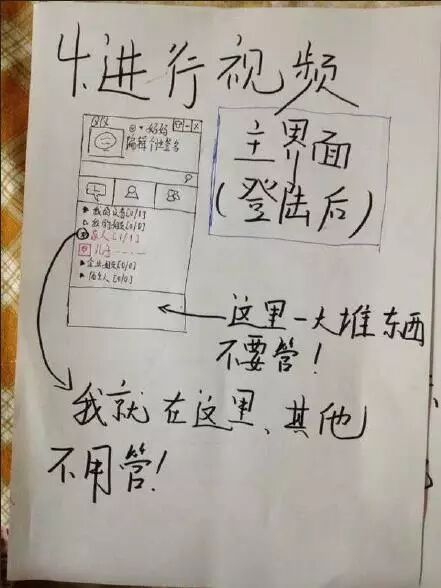 4.进行视频
QQ
好好
编辑个性签名
主界面
(登陆后)
我的设备[0/1]
我的好友[0/0]
家人[1/1]
儿子
企业好友[0/0]
陌生人[0/0]
这里一大堆东西
不要管!
我就在这里、其他
不用管!